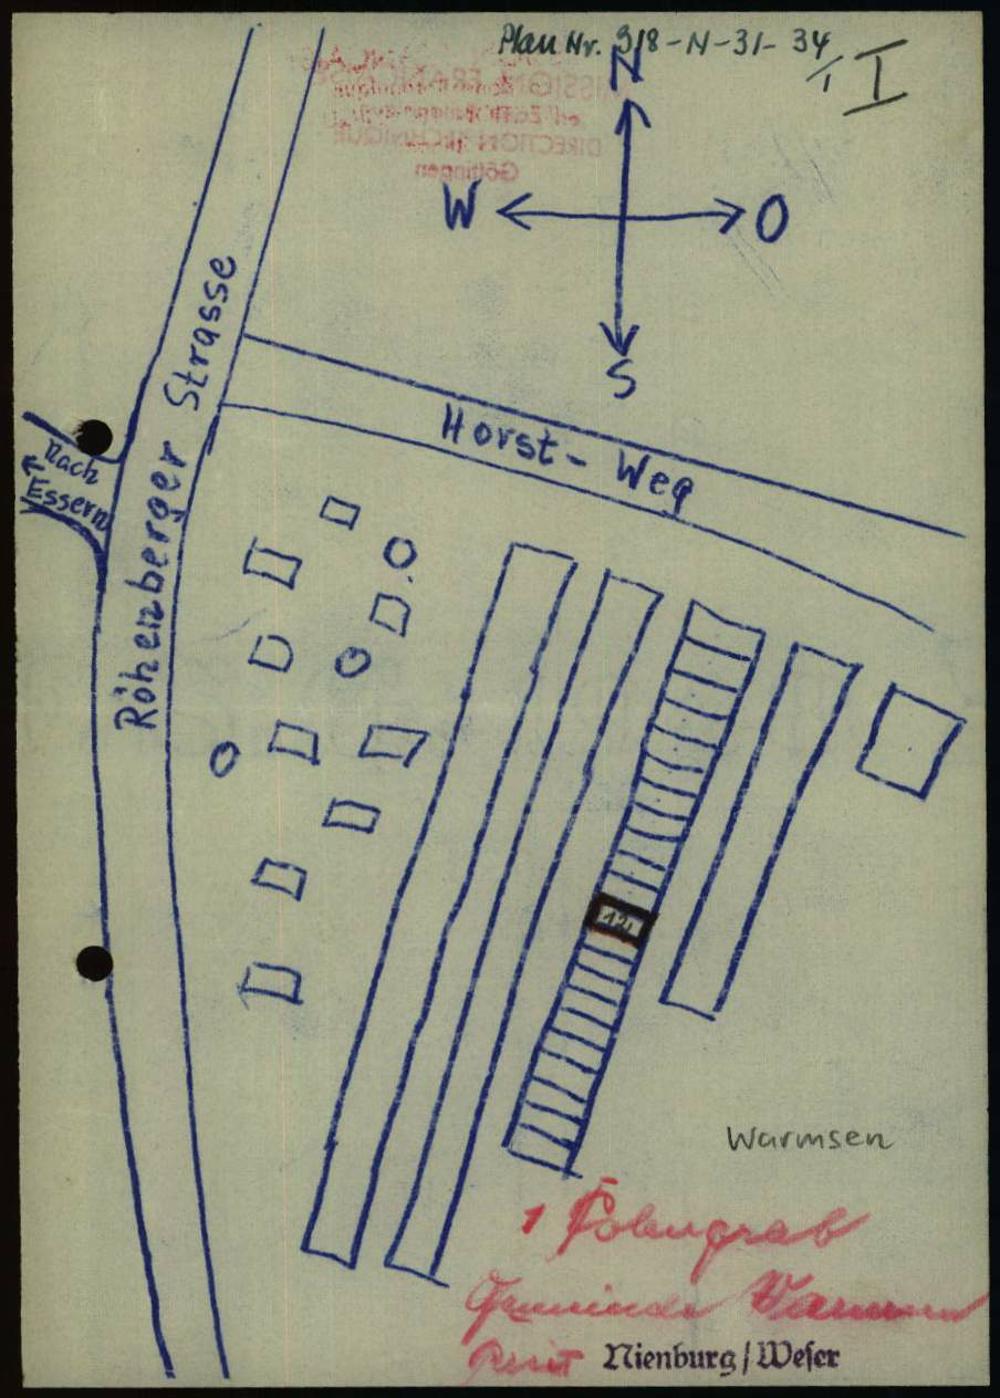 Plan Nr. 318-N-31-34
I
N
MISSION FRANÇAISE
DIRECTION TECHNIQUE
Göttingen
W O
S
Röhenberger Strasse
Horst-Weg
Nach
Essern
12
Warmsen
1 Polengrab
Gemeinde Warmsen
Kreis Nienburg/Weser